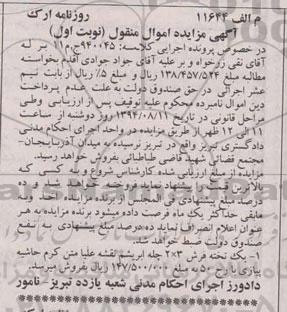 م الف ۱۱۶۴۴ روزنامه ارک
آگهی مزایده اموال منقول (نوبت اول)
در خصوص پرونده اجرایی کلاسه: ۹۴۰۰۴۵ج۱۱۰ بر له
آقای نقی زودخواه و بر علیه آقای جواد جوادی آقدم بخواسته
مطالبه مبلغ ۱۳۸/۴۵۷/۵۲۴ ریال و مبلغ ۵٪ ریال از بابت نیم
عشر اجرائی در حق صندوق دولت به علت عدم پرداخت
دین اموال نامبرده محکوم علیه توقیف پس از ارزیابی وطی
مراحل قانونی در تاریخ ۱۳۹۴/۰۸/۱۱ روز دوشنبه از ساعت
۱۱ الی ۱۲ ظهر از طریق مزایده در واحد اجرای احکام مدنی
دادگستری تبریز واقع در تبریز نرسیده به میدان آذربایجان-
مجتمع قضائی شهید قاضی طباطبائی بفروش خواهد رسید.
مزایده از مبلغ ارزیابی شده کارشناس شروع و به کسی که
بالاترین قیمت را پیشنهاد نماید فروخته خواهد شد و ده
درصد مبلغ پیشنهادی فی المجلس از برنده مزایده اخذ و به
مابقی حداکثر یک ماه فرصت داده میشود برنده مزایده به هر
عنوان اعلام انصراف نماید ده درصد مبلغ پیشنهادی به نفع
صندوق دولت ضبط خواهد شد.
۱- یک تخته فرش ۳×۲ چله ابریشم نقشه علیا متن کرم حاشیه
پیازی با رج ۵۰ به مبلغ ۱۴۷/۵۰۰/۰۰۰ ریال بفروش میرسد.
دادورز اجرای احکام مدنی شعبه یازده تبریز- نامور